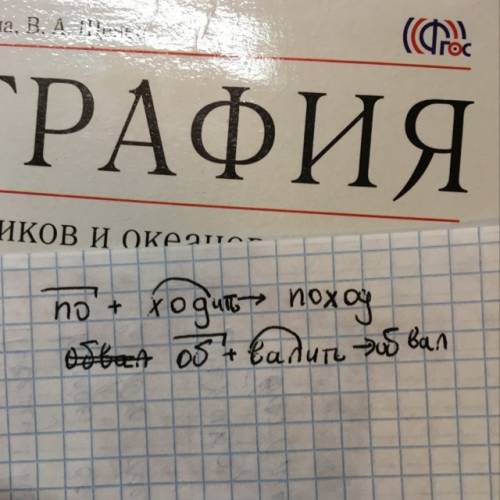 на, В. А. Щен
ФГОС
ГРАФИЯ
иков и океанов
по + ходить → поход
обвал об + валить → обвал